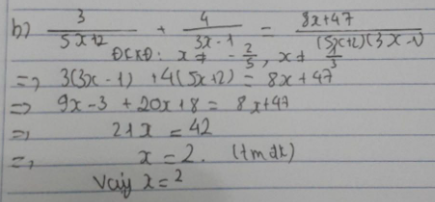 b) 3/(5x+2) + 4/(3x-1) = (8x+47)/((5x+2)(3x-1))
ĐKXĐ: x ≠ -2/5, x ≠ 1/3
=> 3(3x-1) + 4(5x+2) = 8x+47
=> 9x-3 + 20x+8 = 8x+47
=> 21x = 42
=> x = 2. (tmđk)
Vậy x = 2